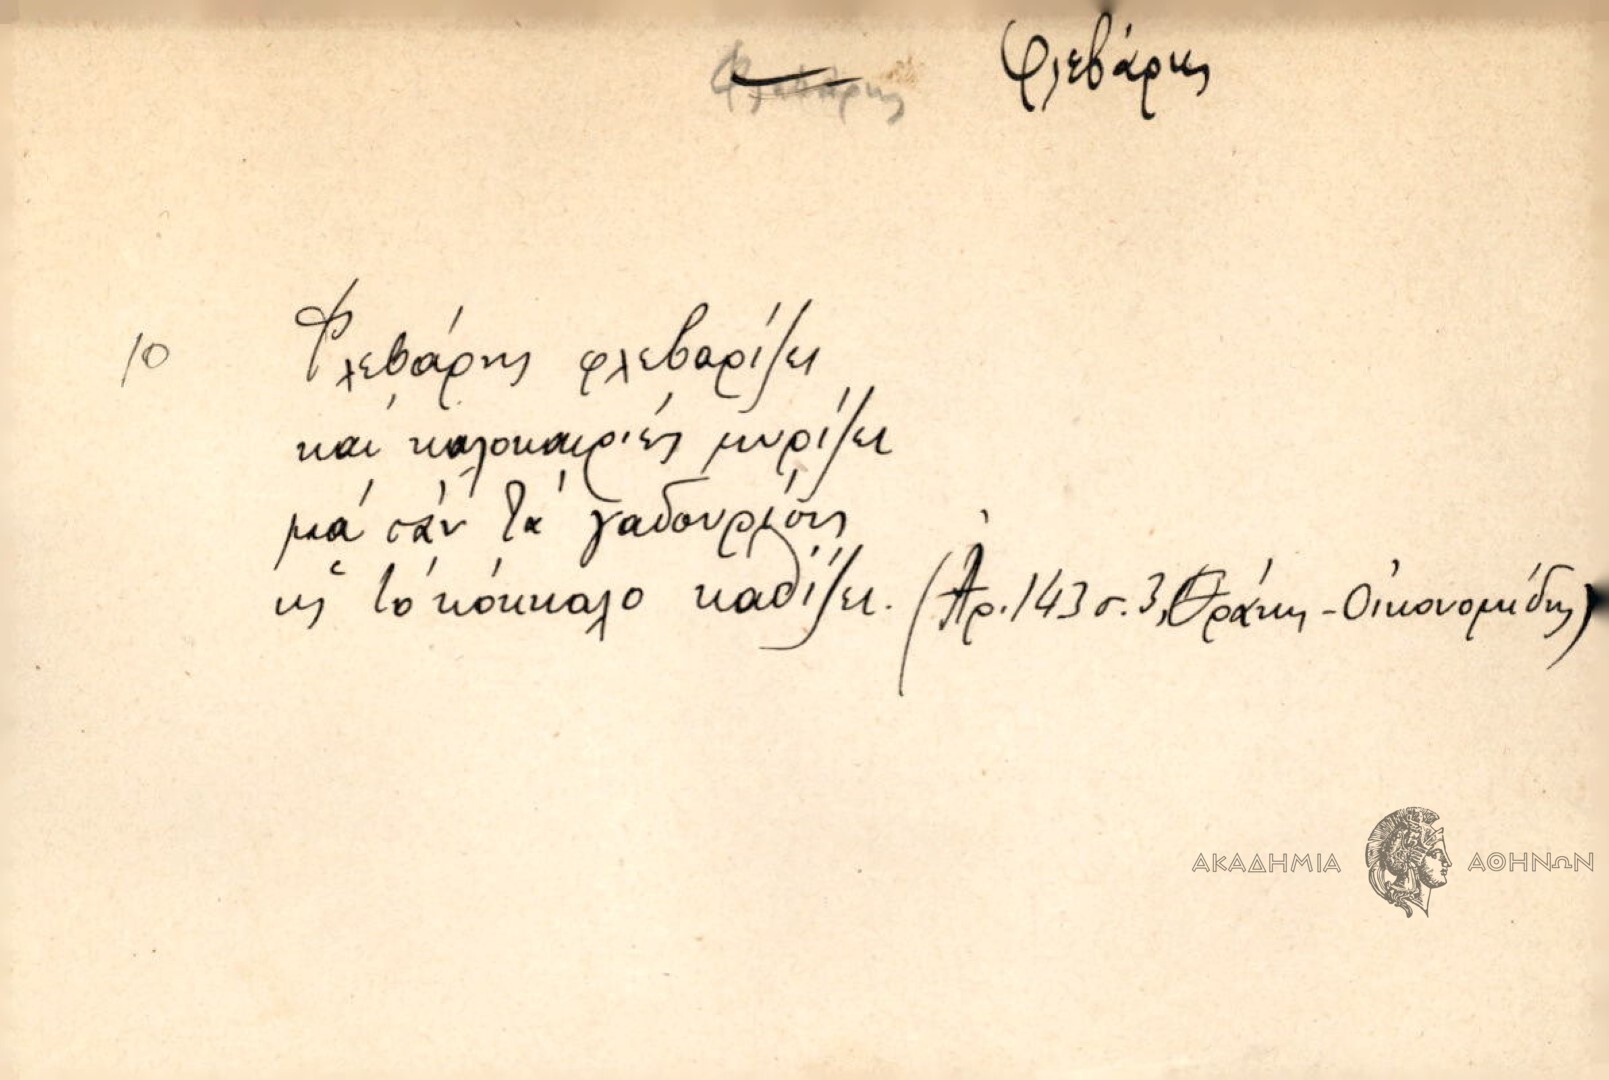 Φλεβάρης
Φλεβάρης
10
Φλεβάρης φλεβαρίζει
και καλοκαιριές μυρίζει
μά σάν τά
κόκκαλο καθίζει. (Ἀρ. 143 σ. 3, Θράκης - Οἰκονομίδης)
ΑΚΑΔΗΜΙΑ ΑΘΗΝΩΝ